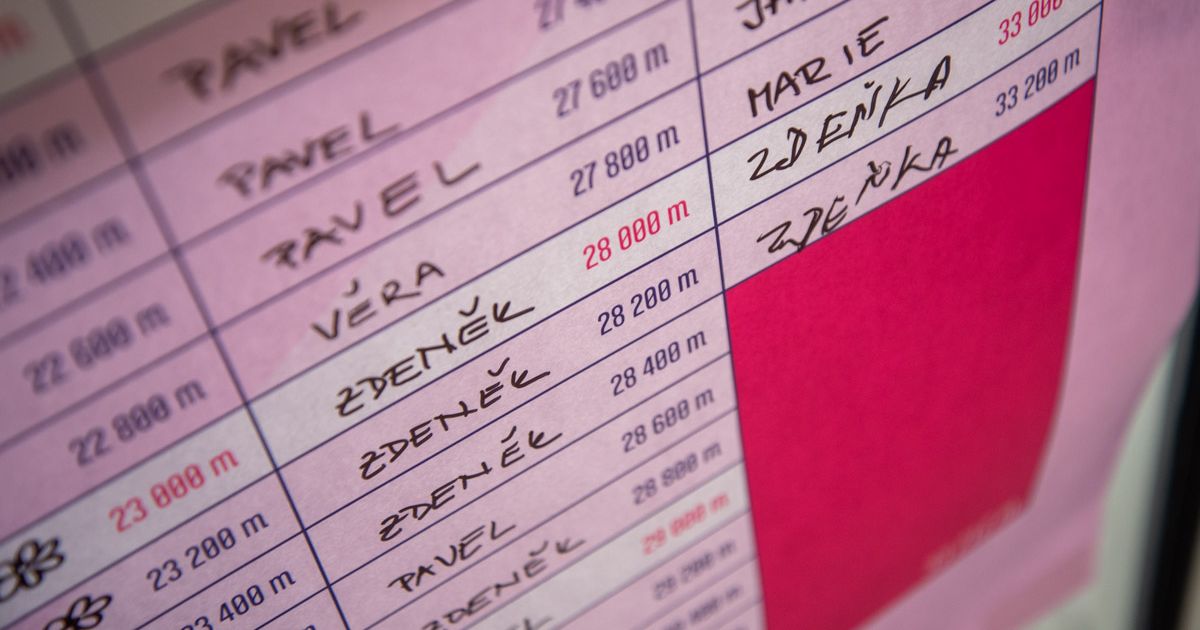 2 400 m
22 600 m
22 800 m
23 000 m
23 200 m
23 400 m
PAVEL
PAVEL 27 4
PAVEL 27 600 m
VĚRA 27 800 m
ZDENĚK 28 000 m
ZDENĚK 28 200 m
ZDENĚK 28 400 m
PAVEL 28 600 m
ZDENĚK 28 800 m
EL 29 000 m
29 200 m
JA
MARIE
ZDEŇKA 33 000
ZDEŇKA 33 200 m